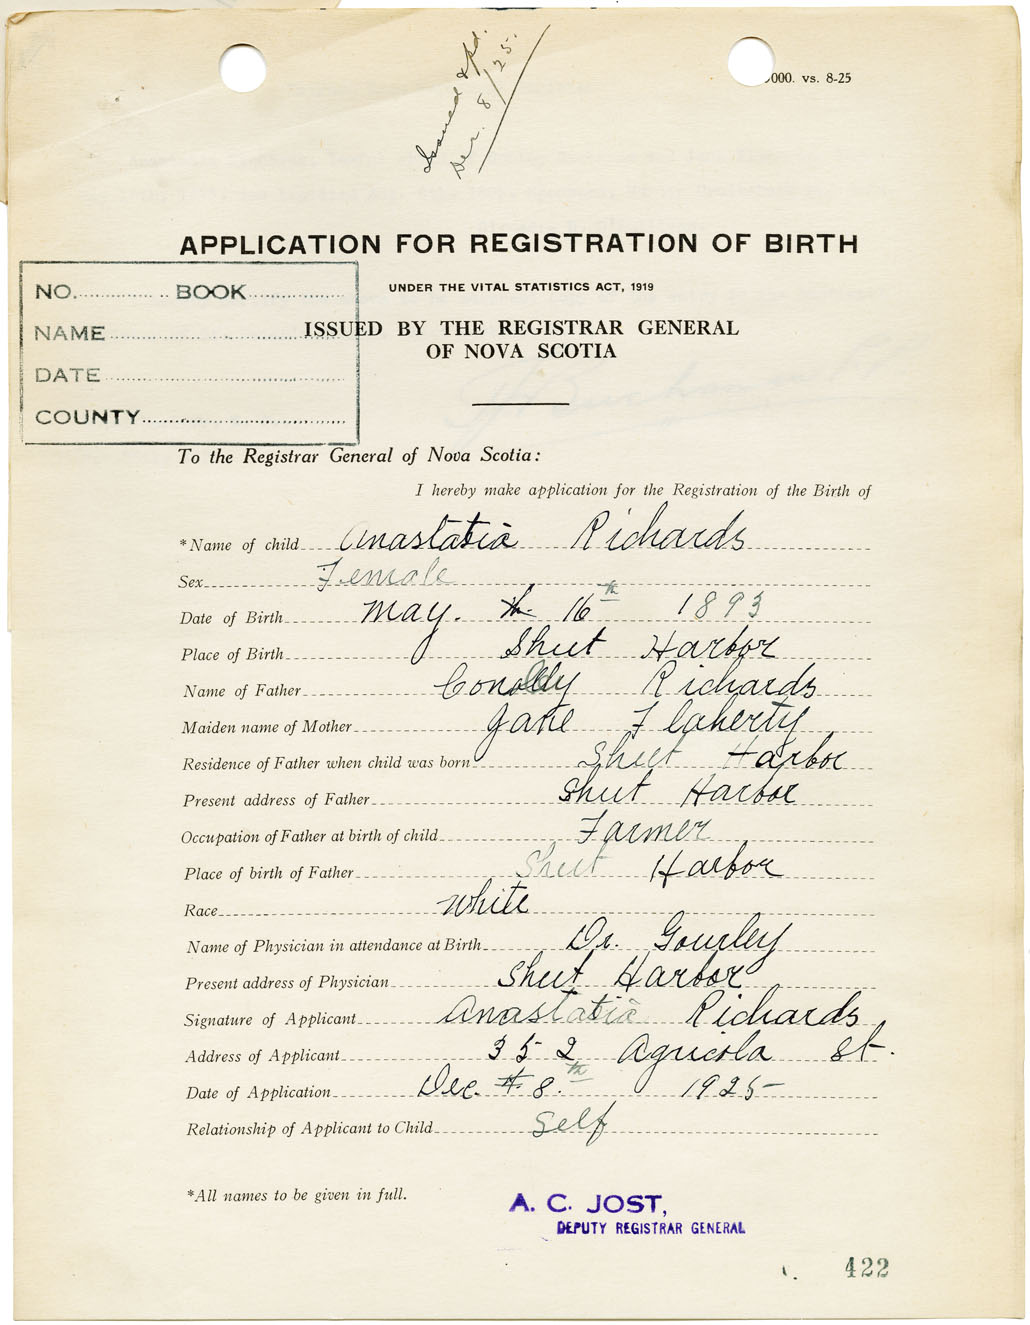 Issued & pd.
Dec. 8/25.
000. vs. 8-25
APPLICATION FOR REGISTRATION OF BIRTH
UNDER THE VITAL STATISTICS ACT, 1919
ISSUED BY THE REGISTRAR GENERAL
OF NOVA SCOTIA
NO. BOOK
NAME
DATE
COUNTY
To the Registrar General of Nova Scotia:
I hereby make application for the Registration of the Birth of
*Name of child Anastatia Richards
Sex Female
Date of Birth May. 16th 1893
Place of Birth Sheet Harbor
Name of Father Conolly Richards
Maiden name of Mother Jane Flaherty
Residence of Father when child was born Sheet Harbor
Present address of Father Sheet Harbor
Occupation of Father at birth of child Farmer
Place of birth of Father Sheet Harbor
Race White
Name of Physician in attendance at Birth Dr. Gourley
Present address of Physician Sheet Harbor
Signature of Applicant Anastatia Richards
Address of Applicant 352 Agricola St.
Date of Application Dec. 8th 1925
Relationship of Applicant to Child Self
*All names to be given in full.
A. C. JOST,
DEPUTY REGISTRAR GENERAL
422